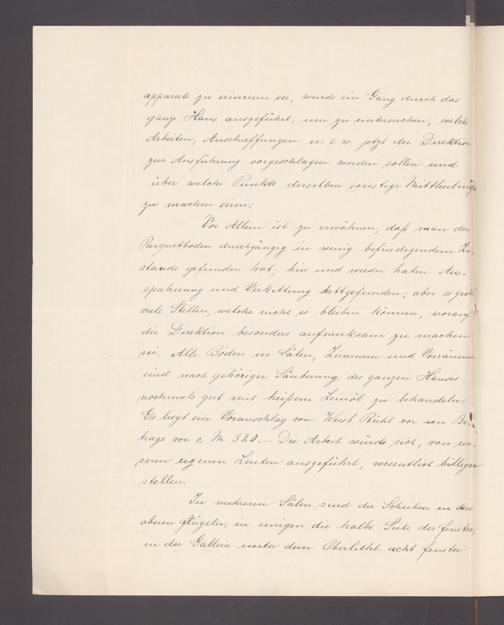 apparats zu erinnern sei, wurde ein Gang durch das
ganze Haus ausgeführt, um zu untersuchen, welche
Arbeiten, Anschaffungen u. s. w. jetzt der Direktion
zur Ausführung vorgeschlagen werden sollen und
über welche Punkte derselben sonstige Mittheilungen
zu machen seien.
Vor Allem ist zu erwähnen, daß man den
Parquetboden durchgängig in wenig befriedigendem Zu-
stande gefunden hat; hin und wieder haben Aus-
spahnung und Verkittung stattgefunden, aber es giebt
viele Stellen, welche nicht so bleiben können, worauf
die Direktion besonders aufmerksam zu machen
sei. Alle Böden in Sälen, Zimmern und Vorräumen
sind nach gehöriger Säuberung des ganzen Hauses
nochmals gut mit heißem Leinöl zu behandeln.
Es liegt ein Voranschlag von Rühl vor im Be-
trage von c. M. 320.– Die Arbeit würde sich, von un-
seren eigenen Leuten ausgeführt, wesentlich billiger
stellen.
In mehreren Sälen sind die Scheiben in den
oberen Flügeln, in einigen die halbe Seite der Fenster,
in der Gallerie unter dem Oberlicht acht Fenster